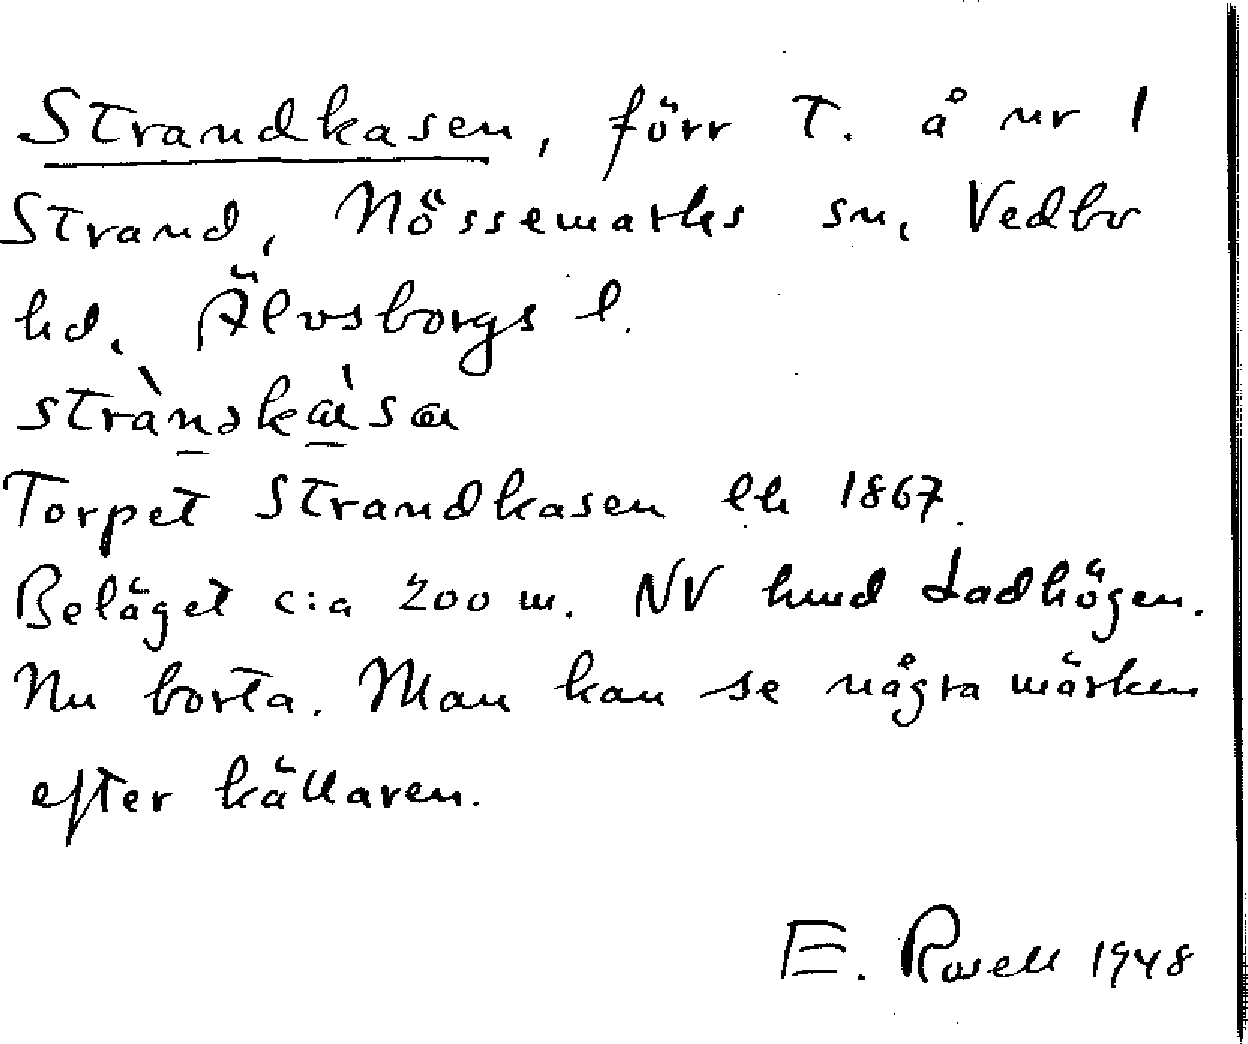 Strandkasen, förr T. å nr 1
Strand, Nössemarks sn, Vedbo
hd. Älvsborgs l.
strànskɑ̀sɑ
Torpet Strandkasen lk 1867.
Beläget c:a 200 m. NV hmd Ladhögen.
Nu borta. Man kan se några märken
efter källaren.
E. Rosell 1948